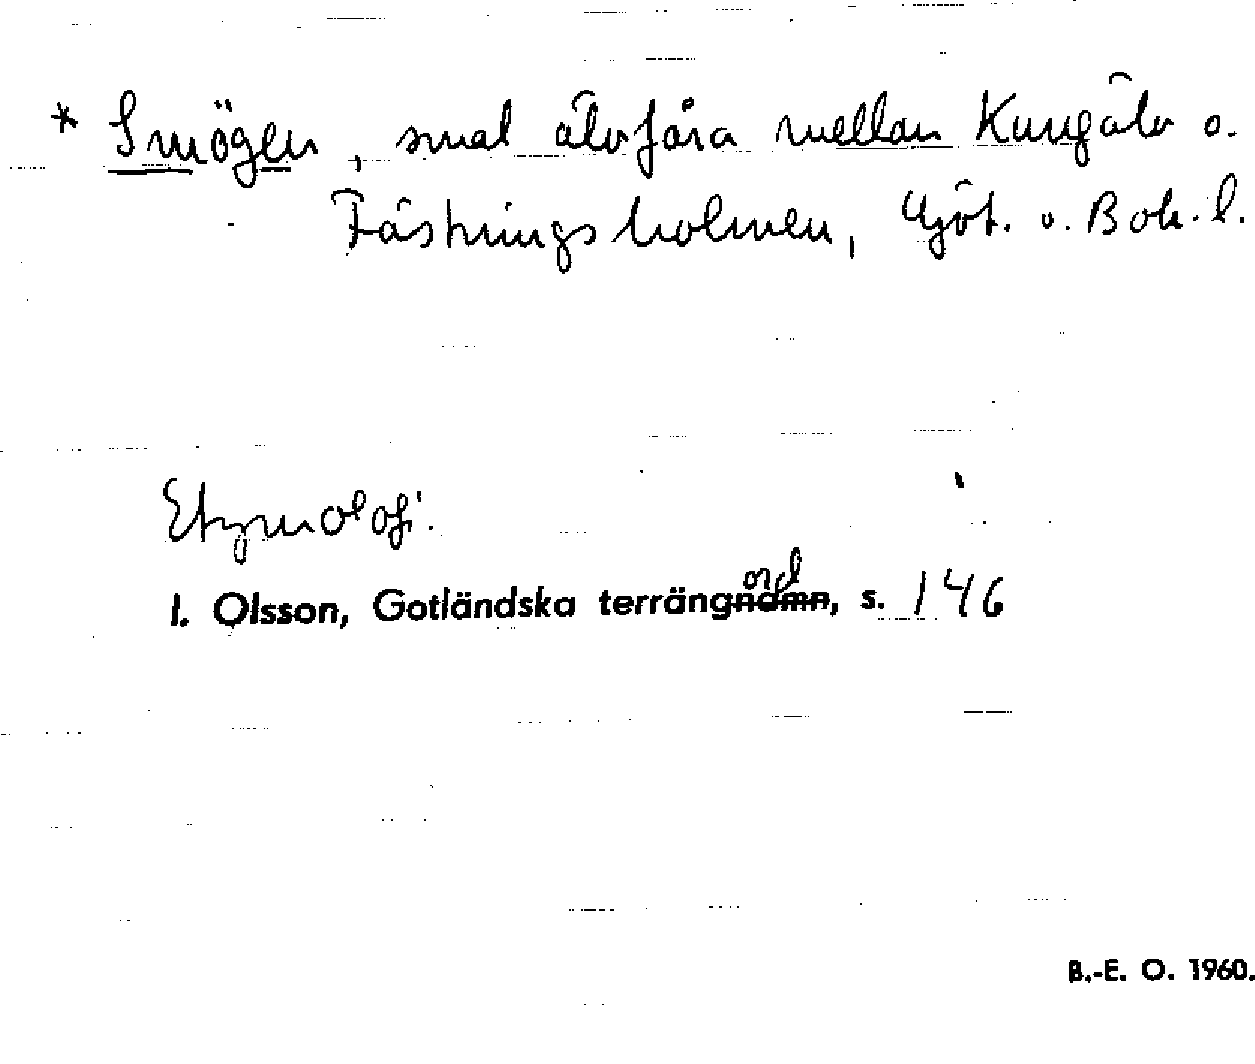 * Smögen, smal älvfåra mellan Kungälv o.
Fästningsholmen, Göt. o. Boh. l.
Etymologi.
I. Olsson, Gotländska terrängnamn, s. 146
ord
B.-E. O. 1960.